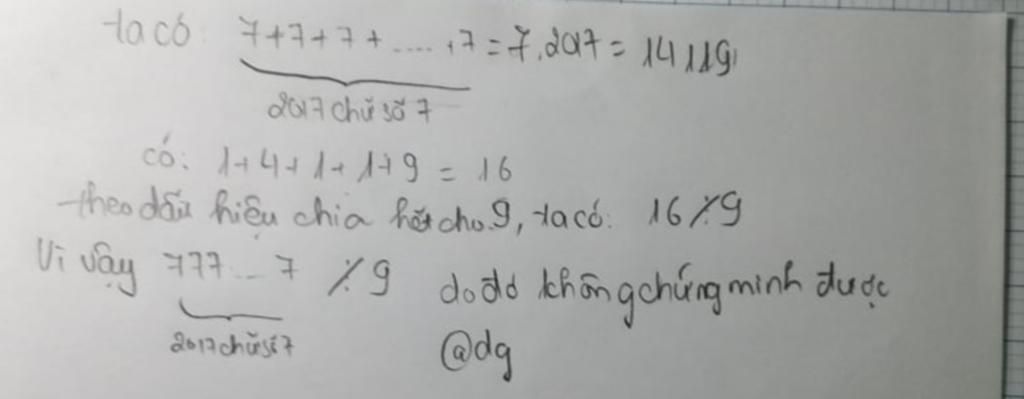 ta có: 7+7+7+.....,7 = 7.2017 = 14119
2017 chữ số 7
có: 1+4+1+1+9 = 16
theo dấu hiệu chia hết cho 9, ta có: 16 ⋮̸ 9
Vì vậy 777...7 ⋮̸ 9 do đó không chứng minh được
2017 chữ số 7 @dg